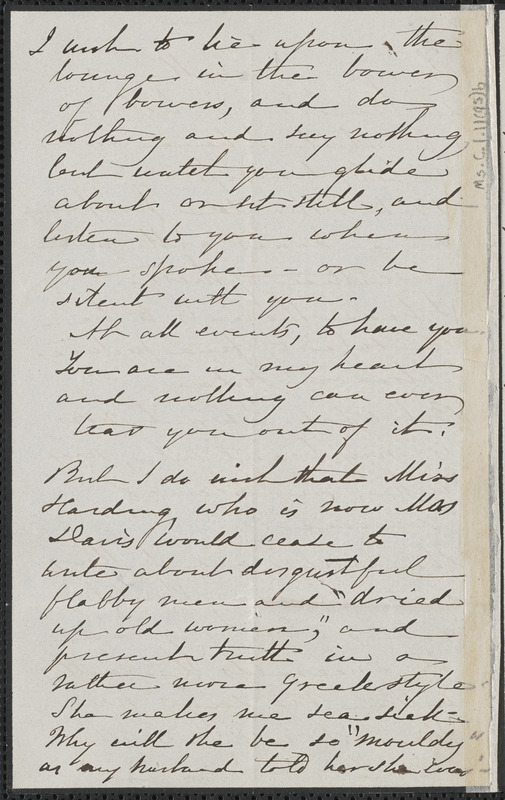 I wish to lie upon the
lounge in the bower
of bowers, and do
nothing and say nothing
but watch you glide
about or sit still, and
listen to you when
you spoke - or be
silent with you.
At all events, to have you.
You are in my heart
and nothing can ever
tear you out of it!
But I do wish that Miss
Harding who is now Mrs
Davis would cease to
write about disgustful
flabby men and "dried
up old women," and
present truth in a
rather more Greek style.
She makes me sea sick -
Why will she be so "mouldy"
as my husband told her she was
Ms. C. 1.11(95)b